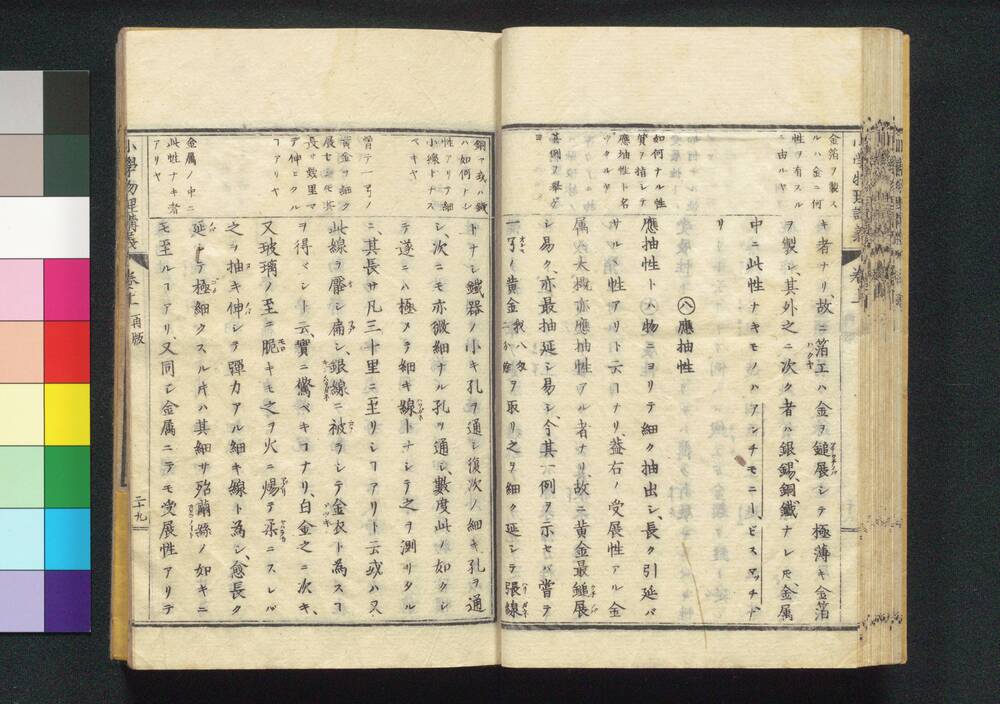 金箔ヲ製ス
ルハ金ニ何
性ヲ有スル
ニ由ルヤ
キ者ナリ、故ニ箔工ハ金ヲ鎚展シテ極薄キ金箔
ヲ製シ、其外之ニ次ク者ハ銀、錫、銅、鐵ナレ𪜈、金属
中ニ此性ナキモノハアンチモニー、ビスマッチ
リ
㊇應抽性
如何ナル性
質ヲ指シテ
應抽性ト名
ツクルヤ
應抽性トハ物ニヨリテ細ク抽出シ、長ク引延バ
サルベキ性アリト云フナリ、蓋右ノ受展性アル金
属ハ大概亦應抽性アル者ナリ、故ニ黄金最鎚展
其例ヲ擧ゲ
ヨ
シ易ク、亦最抽延シ易シ、今其一例ヲ示セバ嘗テ
一ノ黄金我八ヲ取リ之ヲ細ク延シテ張線
銅又ハ鐵
ハ如何ナル
性アリテ細
小線トナス
ベキヤ
トナシ鐵器ノ小キ孔ヲ通シ復次ノ細キ孔ヲ通
シ、次ニモ亦微細ナル孔ヲ通シ、數度此ノ如クシ
テ遂ニハ極メテ細キ線トナシテ之ヲ測リタル
曽テ一号ノ
黄金ヲ細ク
展セシモ其
長サ数里マ
デ伸ヒタル
ヿアリヤ
ニ、其長サ凡三十里ニ至リシヿアリト云或ハ又
此線ヲ壓シ扁シ、銀線ニ被ラシテ金衣ト為スヿ
ヲ得ベシト云、實ニ驚ベキヿナリ、白金之ニ次キ、
又玻璃ノ至ニ脆キモ之ヲ火ニ煬テ柔ニスレバ
之ヲ抽キ伸シテ彈力アル細キ線ト為シ、愈長ク
金属ノ中ニ
此性ナキ者
アリヤ
延シテ極細クスル片ハ其細サ殆繭絲ノ如キニ
モ至ルヿアリ、又同ジ金属ニテモ受展性アリテ
小學物理講義 巻上 再版
二十九